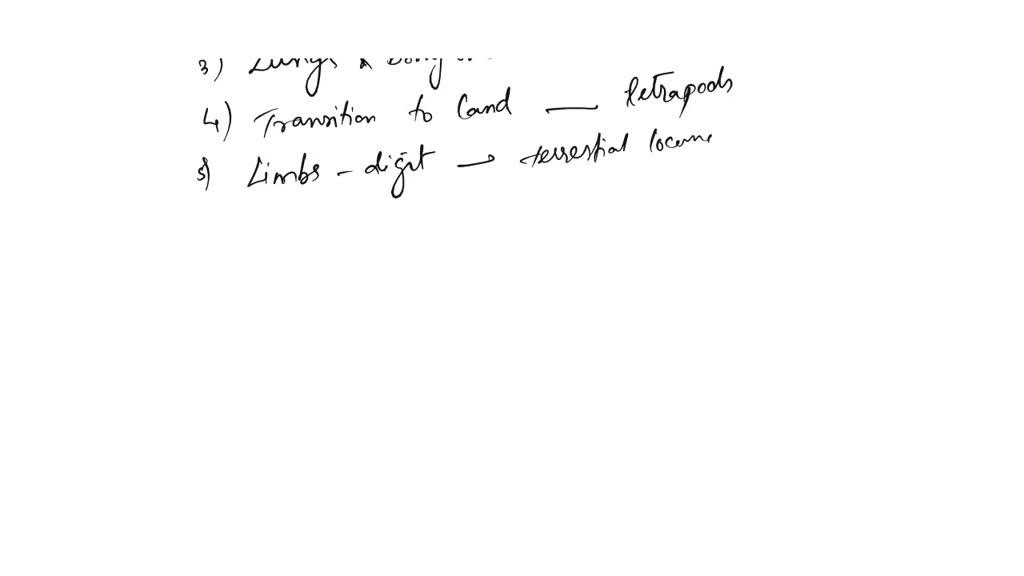 3) Lungs &
4) Transition to Land — Tetrapods
5) Limbs - digit → terrestial locomo